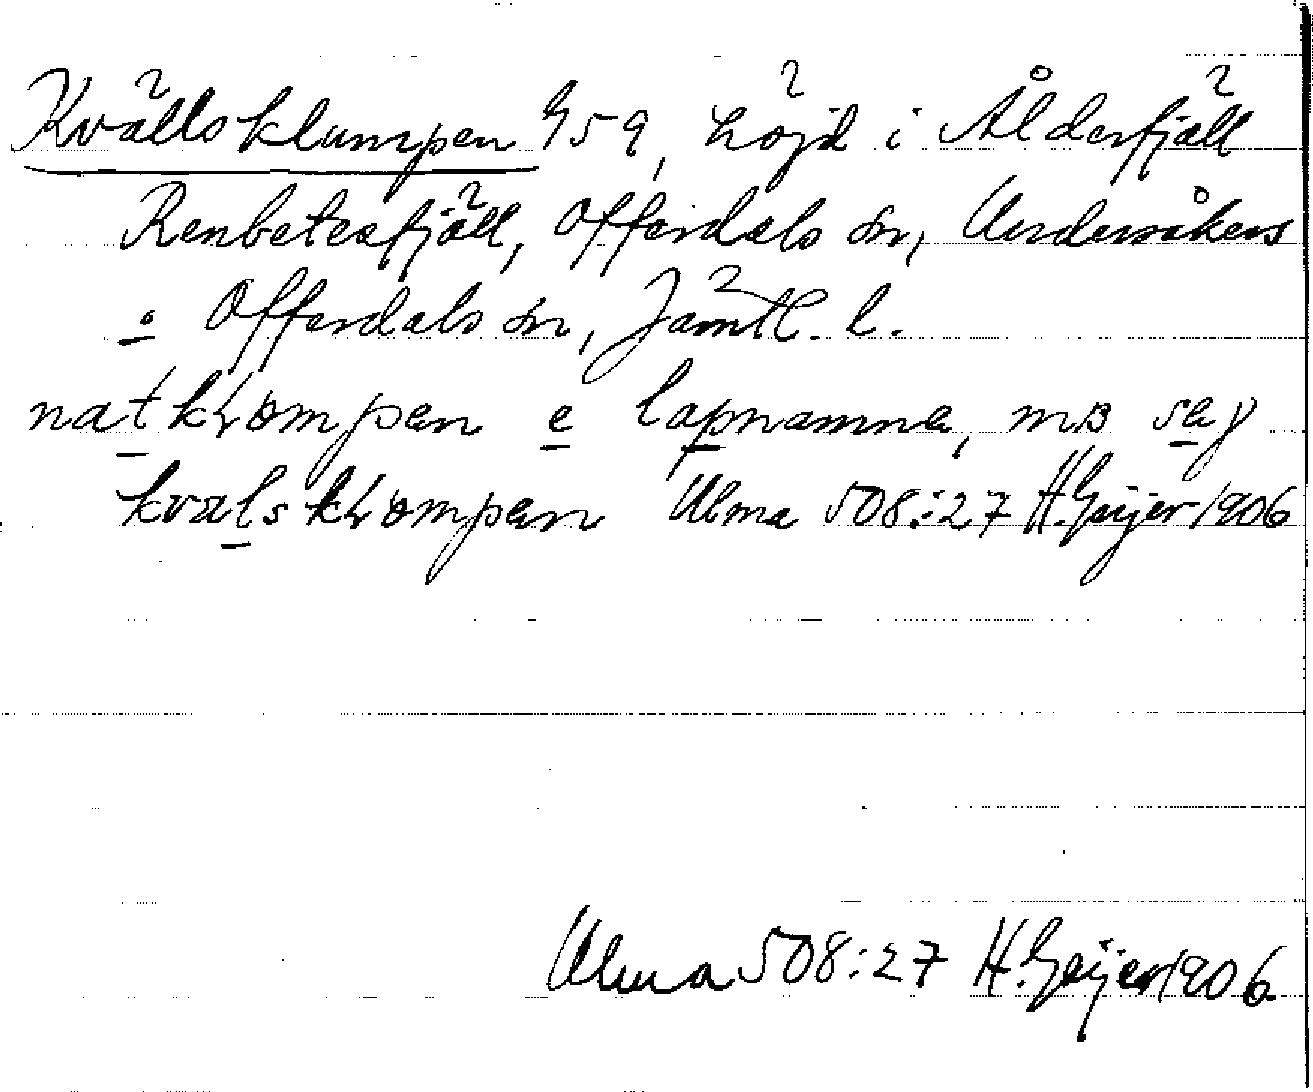 Kvällsklumpen 959, höjd i Ålderfjäll
Renbetesfjäll, Offerdals sn, Undersåkers
o Offerdals sn, Jämtl. l.
natkɬompen e lapnamne, mɒ sæγ
kvælskɬompen Ulma 508:27 H.Geijer 1906
Ulma 508:27 H.Geijer 1906